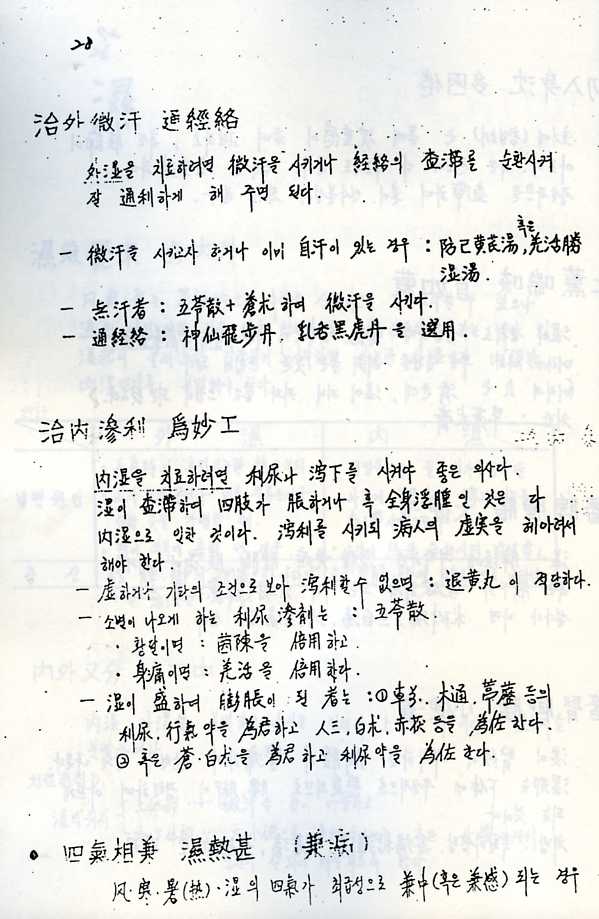 28
治外微汗 通經絡
外湿을 치료하려면 微汗을 시키거나 経絡의 査滯를 순환시켜
잘 通利하게 해 주면 된다.
- 微汗을 시키고자 하거나 이미 自汗이 있는 경우 : 防己黄芪湯, 혹은 羌活勝
湿湯.
- 無汗者 : 五苓散+蒼朮 하여 微汗을 시킨다.
- 通経絡 : 神仙飛步丹, 乳香黑虎丹을 選用.
治内滲利 爲妙工
内湿을 치료하려면 利尿나 泻下를 시켜야 좋은 의사다.
湿이 査滯하여 四肢가 脹하거나 혹 全身浮腫인 것은 다
内湿으로 인한 것이다. 泻利를 시키되 病人의 虛実을 헤아려서
해야 한다.
- 虛하거나 기타의 조건으로 보아 泻利할 수 없으면 : 退黄丸이 적당하다.
- 소변이 나오게 하는 利尿滲剤는 : 五苓散.
· 황달이면 : 茵陳을 倍用하고.
· 身痛이면 : 羌活을 倍用한다.
- 湿이 盛하여 膨脹이 된 者는 : ① 車前, 木通, 葶藶 등의
利尿, 行氣약을 為君하고 人三, 白朮, 赤茯 등을 為佐한다.
② 혹은 蒼·白朮을 為君하고 利尿약을 為佐한다.
• 四氣相兼 濕熱甚 (兼病)
风·寒·暑(热)·湿의 四氣가 최급성으로 兼中(혹은 兼感)되는 경우